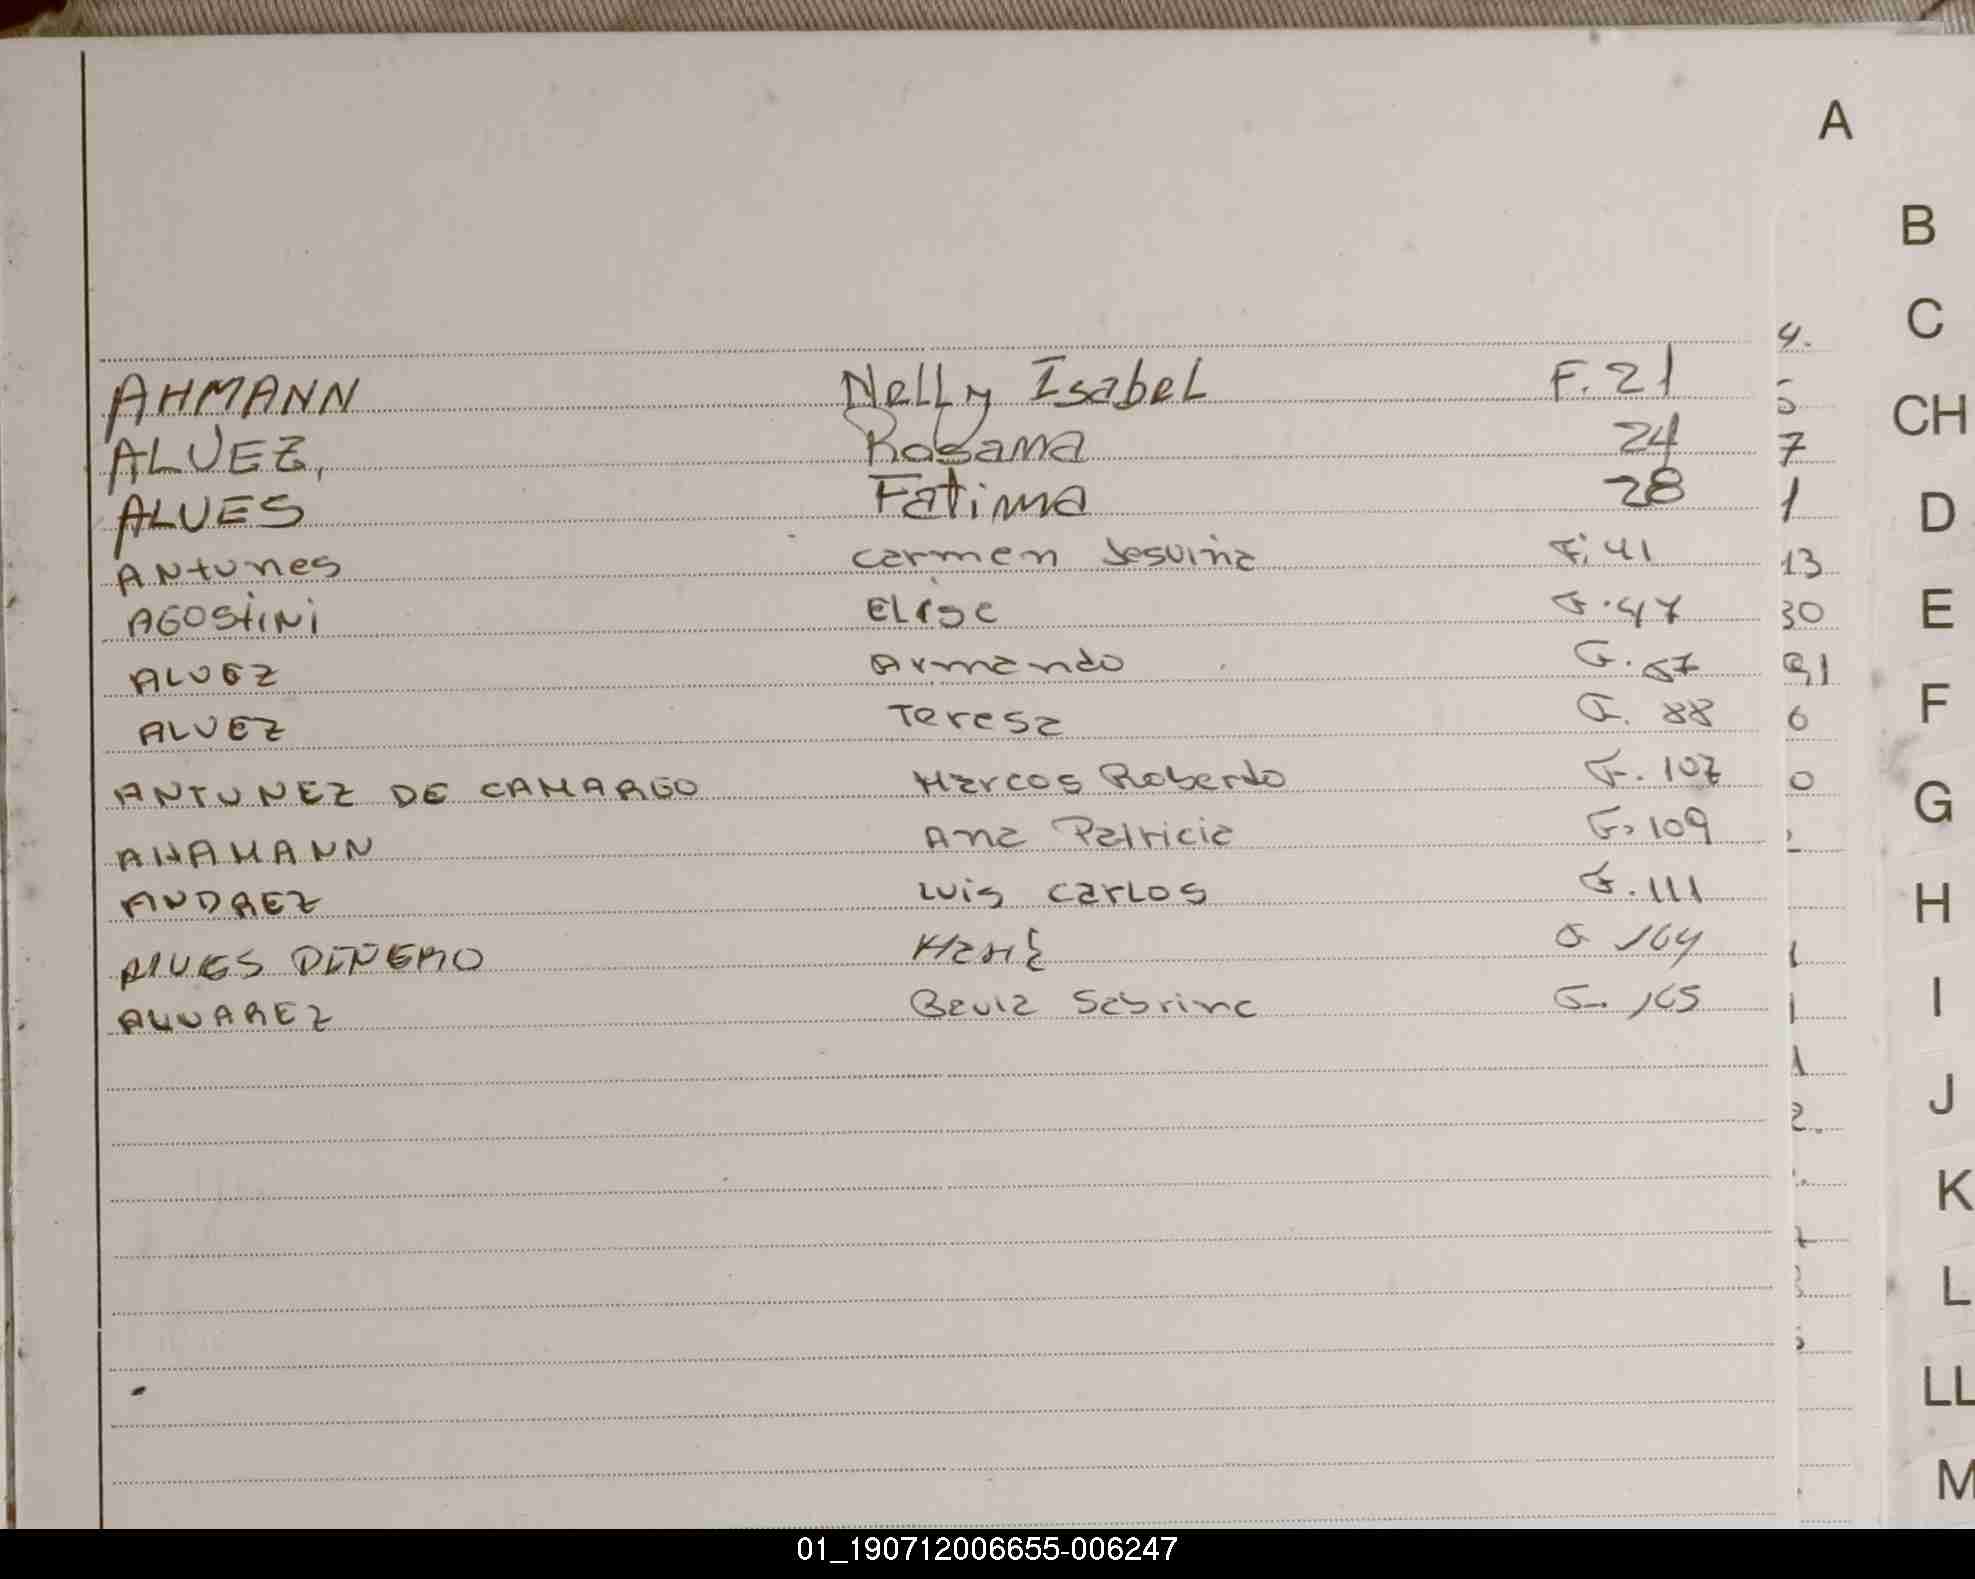 A
B
C
CH
D
E
F
G
H
I
J
K
L
LL
M
AHMANN Nelly Isabel F. 21
ALVEZ, Rosana 24
ALVES Fatima 28
Antunes Carmen Jesuina F. 41
AGOSTINI Elisa F. 47
ALVEZ Armando F. 57
ALVEZ Teresa F. 88
ANTUNEZ DE CAMARGO Marcos Roberto F. 107
AHAMANN Ana Patricia F. 109
ANDREZ Luis Carlos F. 111
ALVES PINEIRO F. 164
ALVAREZ Sabrina F. 165
4.
5
7
1
13
30
91
6
0
1
1
1
2.
01_190712006655-006247